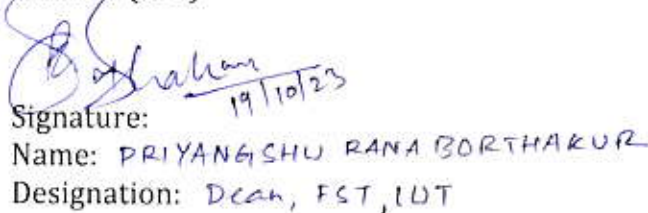 19/10/23
Signature:
Name: PRIYANGSHU RANA BORTHAKUR
Designation: Dean, FST, IUT